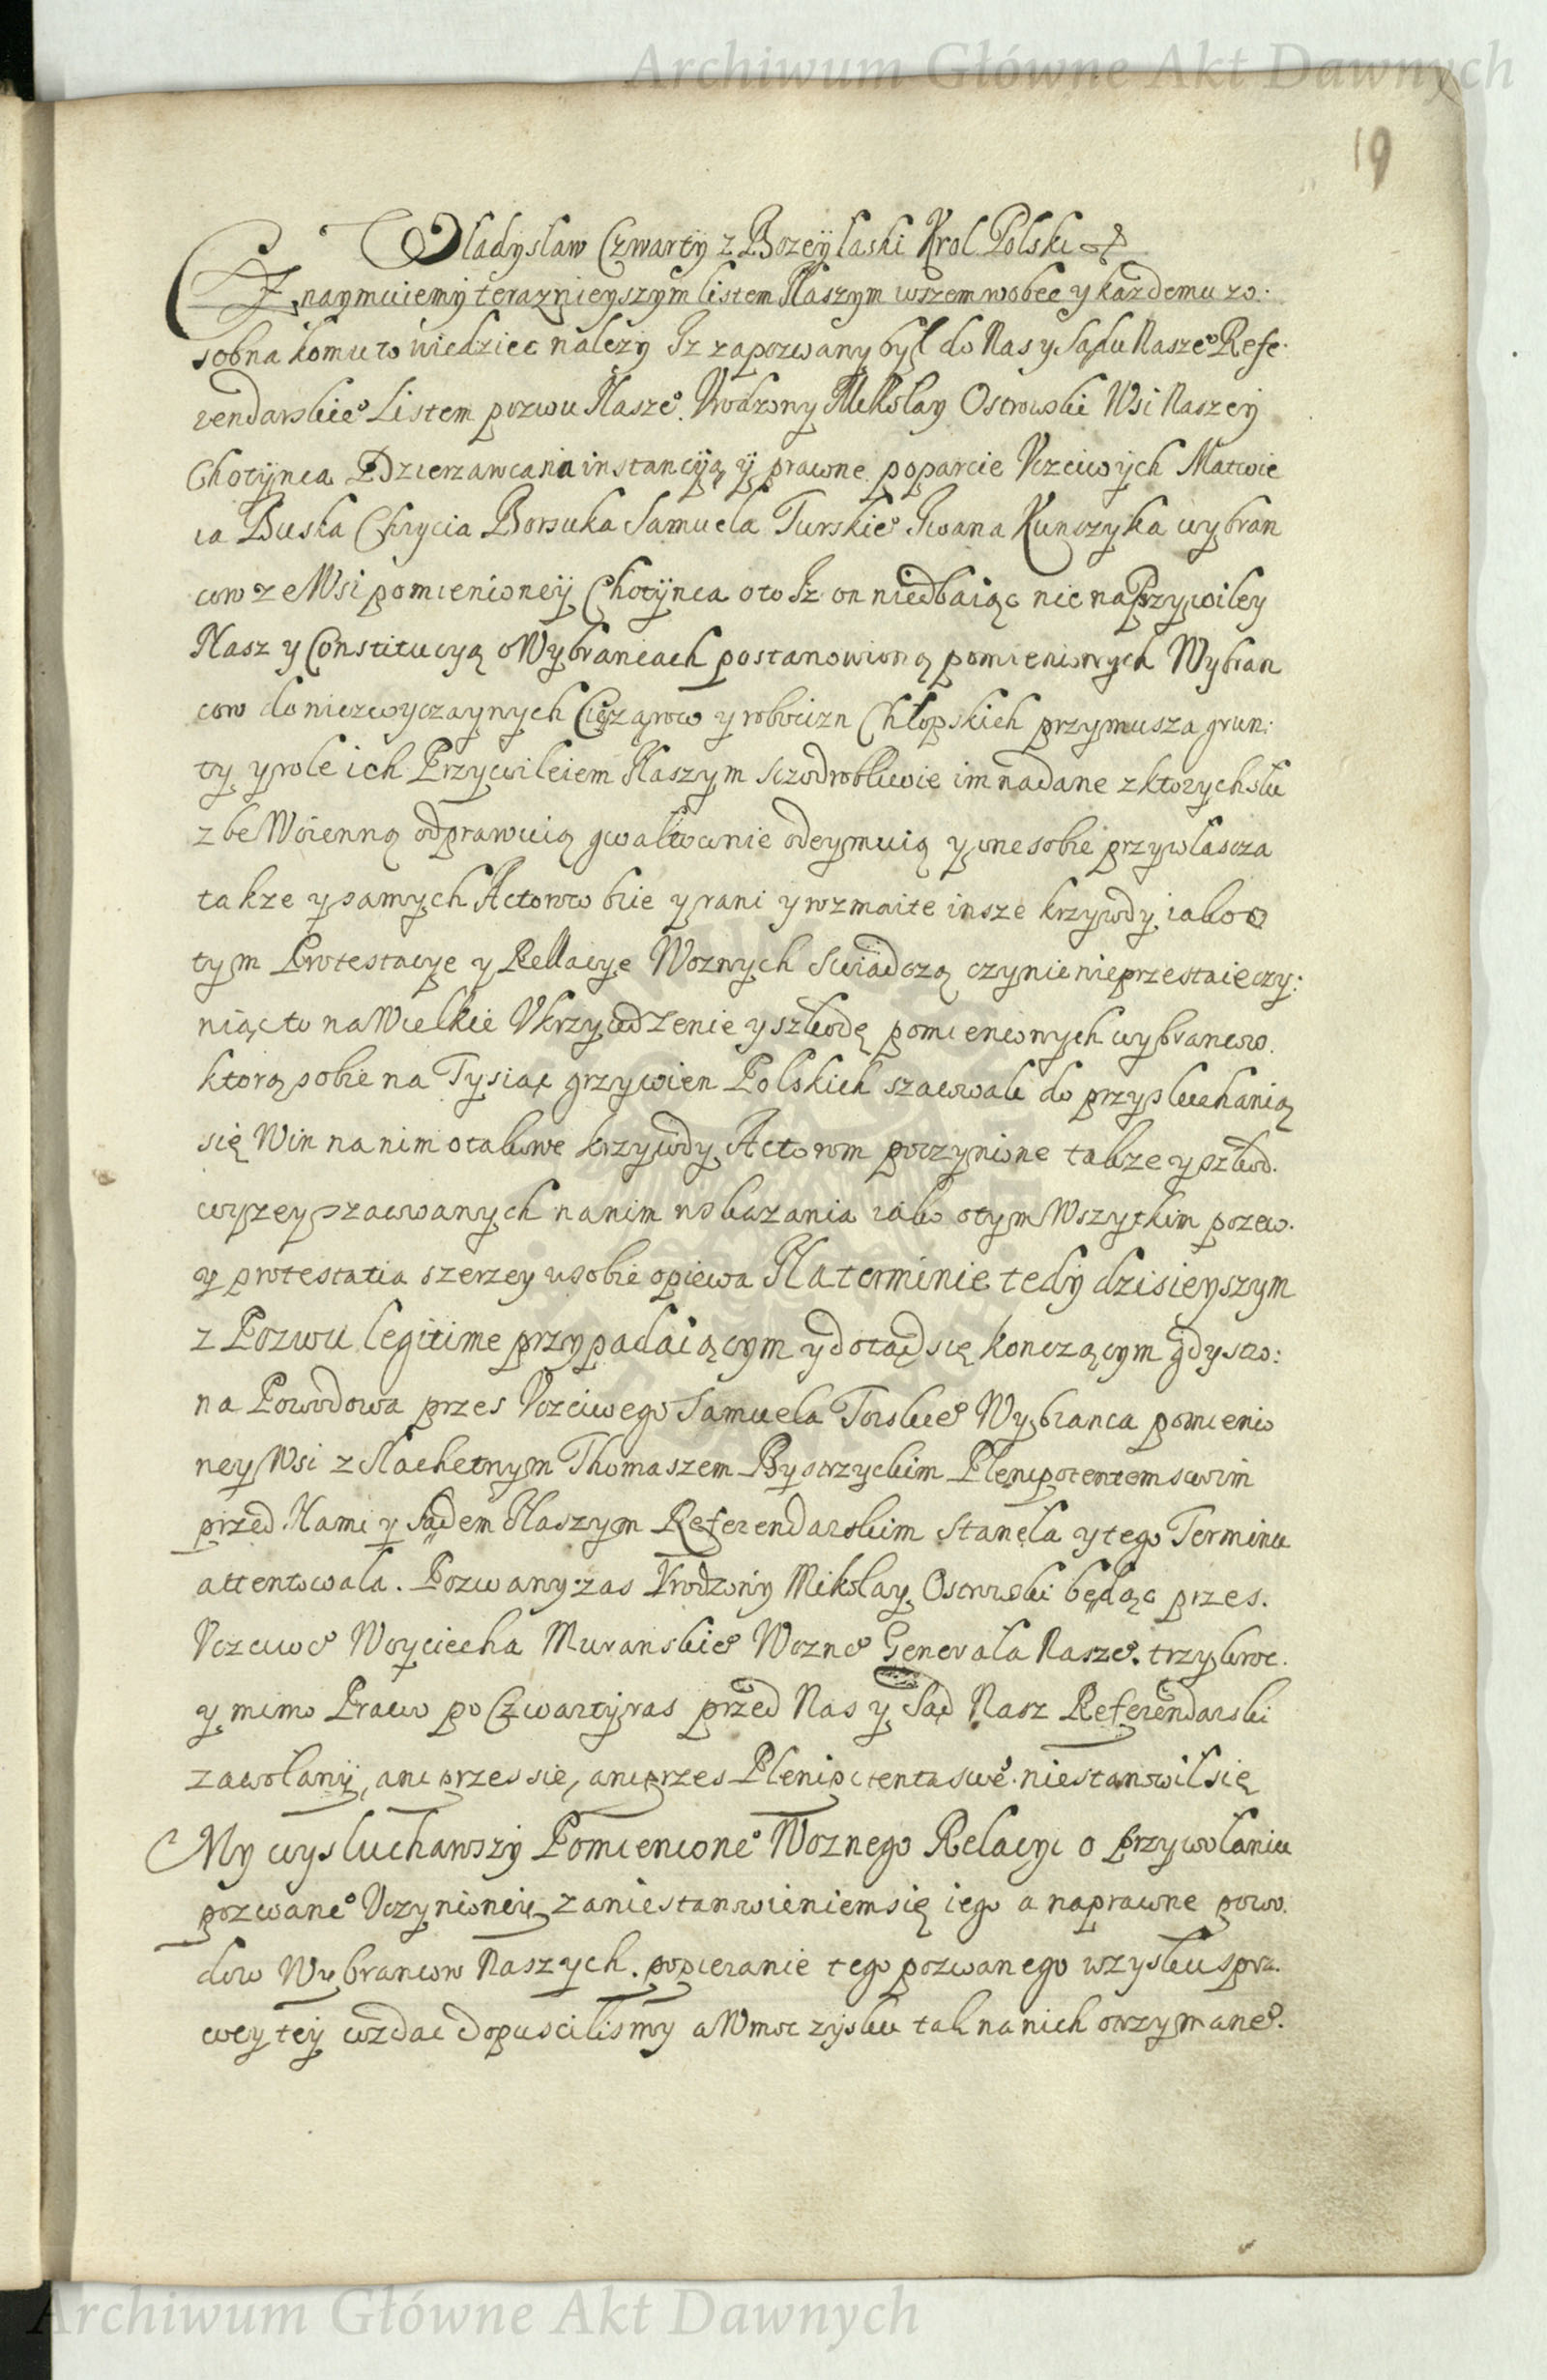 Archiwum Główne Akt Dawnych
19
Wladyslaw Czwarty z Bozey laski Krol Polski &
Oznaymuiemy terazneyszym listem Naszym wszem wobec y kazdemu zo.
sobna komu to wiedziec nalezy Iz zapozwany był do Nas y Sądu Naszeº Refe.
rendarskieº Listem pozwu Naszeº. Vrodzony Mikolay Ostrowski Wsi Naszey
Chotynca Dzierzawca na instancyą y prawne poparcie Vczciwych Matwie
ia Buska Chrycia Borsuka Samuela Turskieº Iwana Kunczyka wybran
cow z e Wsi pomienioney Chotynca oto Iz on niedbaiąc nic na Przywiley
Nasz y Constitucyą o Wybrancach postanowioną pomienionych Wybran
cow do niezwyczaynych Cięzarow y robocizn Chłopskich przymusza grun:
ty y role ich Przywileiem Naszym sczodrobliwie im nadane z ktorych słu
zbe Woienną odprawuią gwałtownie odeymuią y one sobie przywlascza
takze y samych Actorow bie y rani y rozmaite insze krzywdy iako o
tym Protestacye y Rellacye Woznych swiadczą czynic nieprzestaie czy:
niąc to na Wielkie Vkrzywdzenie y szkodę pomienionych wybrancow.
ktorą sobie na Tysiąc grzywien Polskich szacowali do przysluchania
się Win na nim o takowe krzywdy Actorom poczynione takze y szkod.
wyzey szacowanych na nim wskazania iako o tym Wszytkim pozew.
y protestatia szerzey w sobie opiewa Na terminie tedy dzisieyszym
z Pozwu legitime przypadaiącym y dotąd się konczącym gdy stro:
na Powodowa przes Vczciwego Samuela Torskieº Wybranca pomienio
ney Wsi z Slachetnym Thomaszem Bystrzyckim Plenipotentem swoim
przed Nami y Sądem Naszym Referendarskim Stanęla y tego Terminu
attentowala. Pozwany zas Vrodzony Mikolay Ostrowski będąc przes.
Vczciweº Woyciecha Muranskieº Wozneº Generała Naszeº. trzykroc.
y mimo Prawo po Czwarty ras przed Nas y Sąd Nasz Referendarski
zawołany, ani przes sie, ani przes Plenipotenta sweº. niestanowil się
My wysluchawszy Pomienioneº Woznego Relacyi o przywołaniu
pozwaneº Vczynioney za niestanowieniem się iego a na prawne powo.
dow Wybrancow Naszych. popieranie tego pozwanego w zysku spra.
wey tey wzdac dopuscilismy a Wmoc zysku tak na nich otrzymaneº.
Archiwum Główne Akt Dawnych